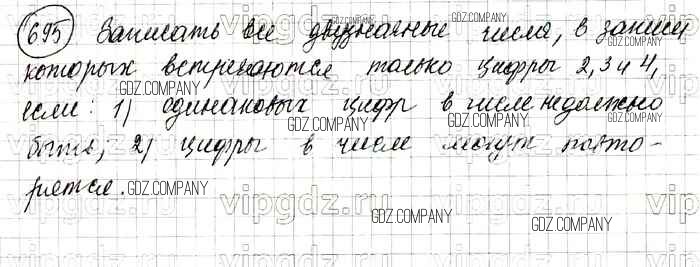 695 Записать все двузначные числа, в записи
которых встречаются только цифры 2, 3 и 4,
если: 1) одинаковых цифр в числе не должно
быть; 2) цифры в числе могут повто-
рятся.
GDZ.COMPANY
GDZ.COMPANY
GDZ.COMPANY
GDZ.COMPANY
GDZ.COMPANY
GDZ.COMPANY
GDZ.COMPANY
GDZ.COMPANY
GDZ.COMPANY
GDZ.COMPANY
vipgdz.ru
vipgdz.ru
vipgdz.ru